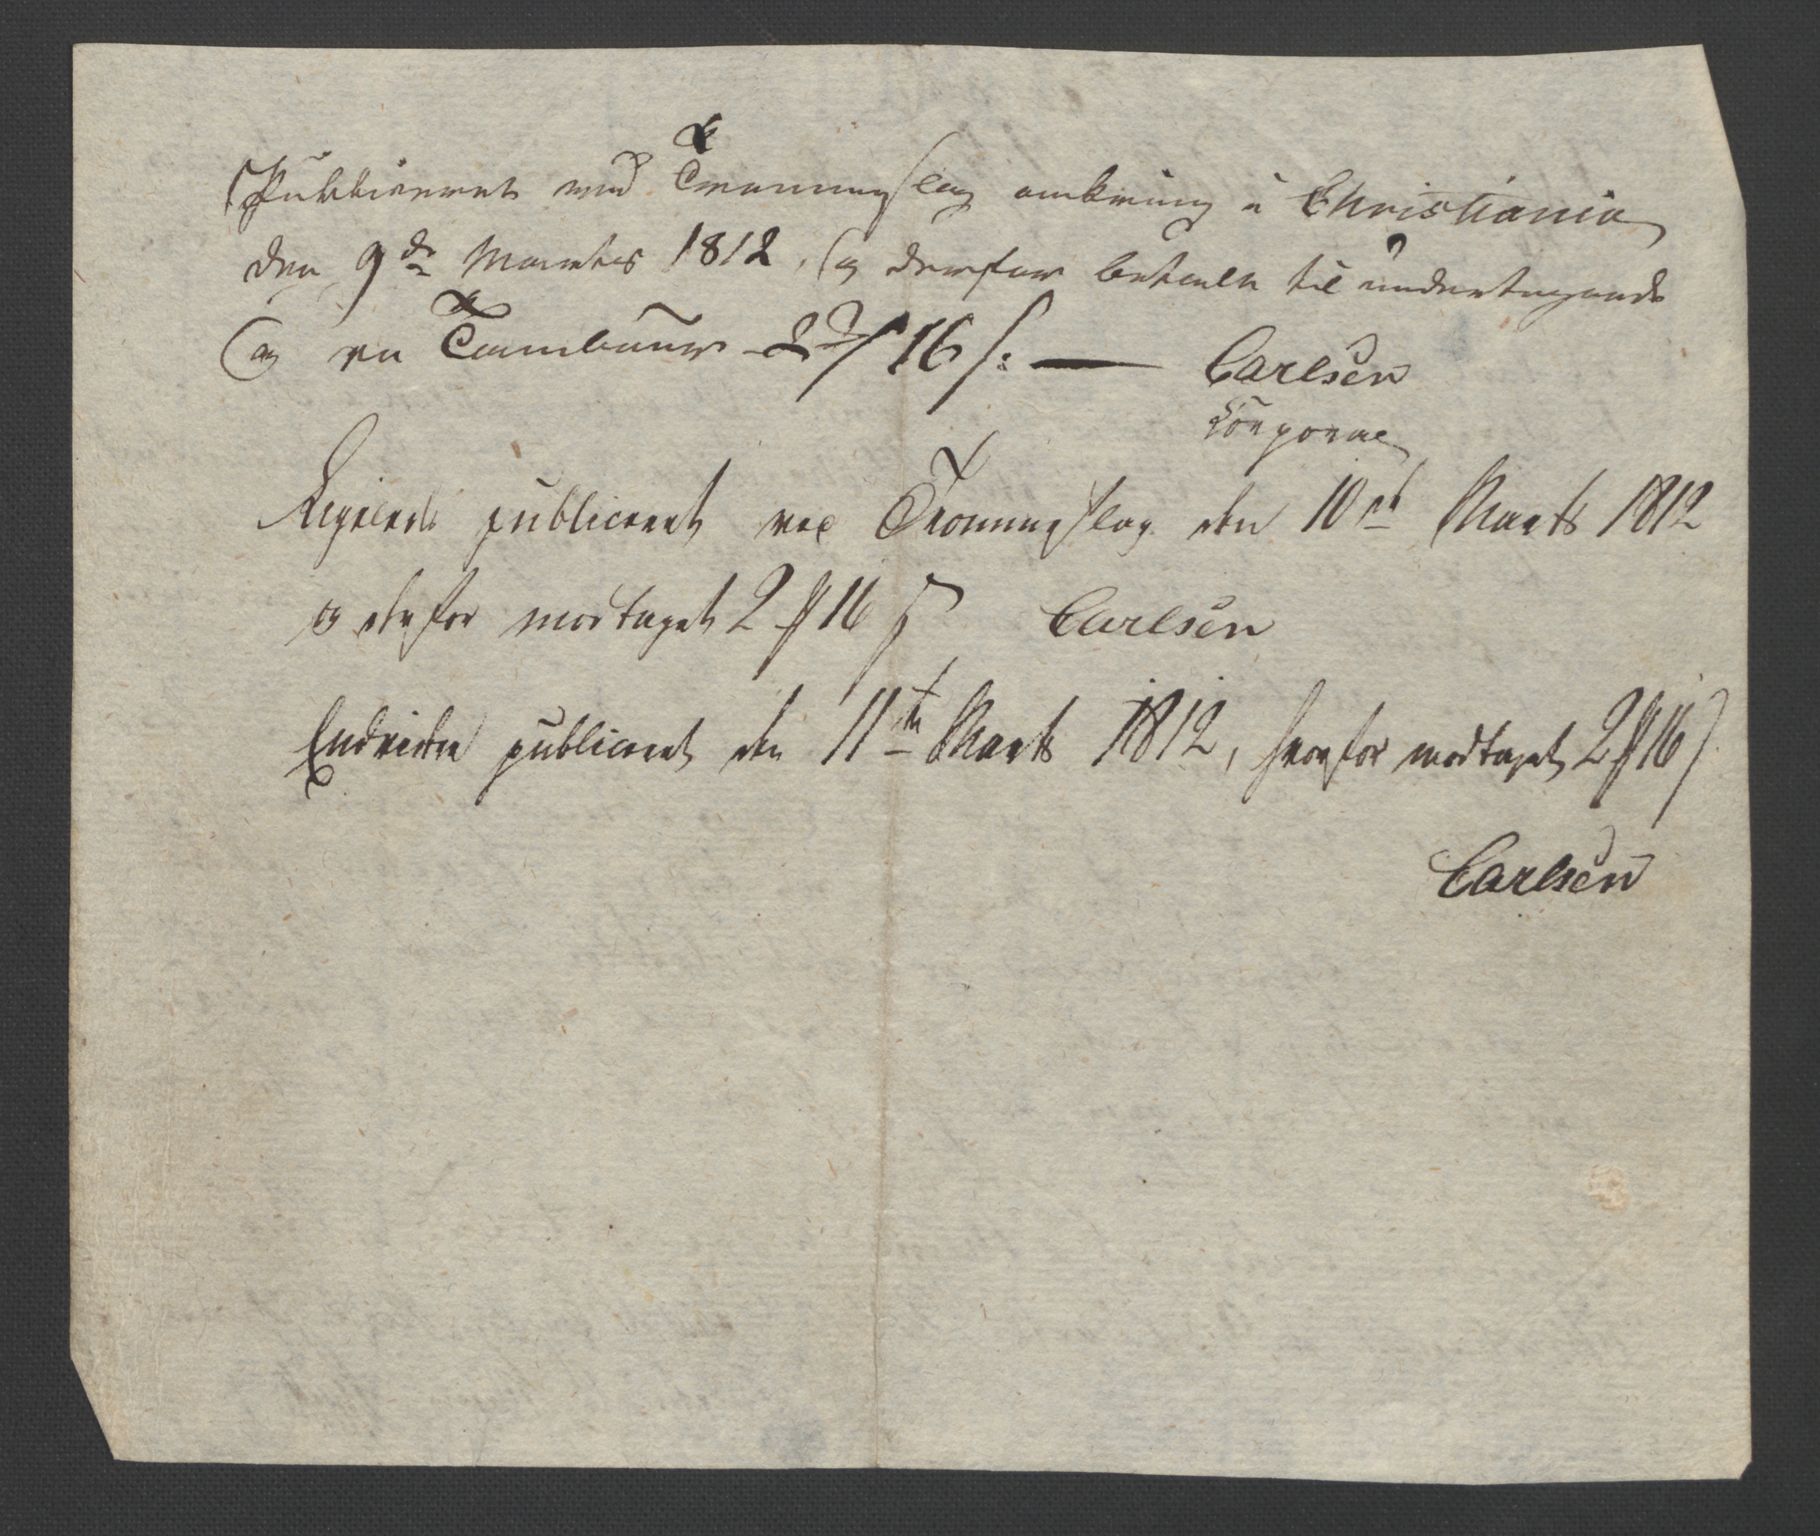 Publiceret ved Trommeslag omkring i Christiania
den 9de Martes 1812, og derfor betalt til undertegnede
og en Tambour 2 16 s: —
Carlsen
Corporal
Ligeledes publiceret ved Trommeslag den 10de Marts 1812
og derfor modtaget 2 16 s Carlsen
Endvidere publiceret den 11te Marts 1812, hvorfor modtaget 2 16 s
Carlsen